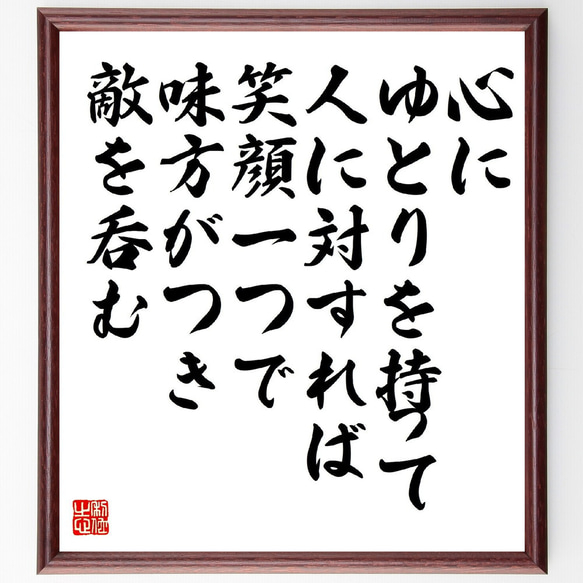 心に
ゆとりを持って
人に対すれば
笑顔一つで
味方がつき
敵を呑む